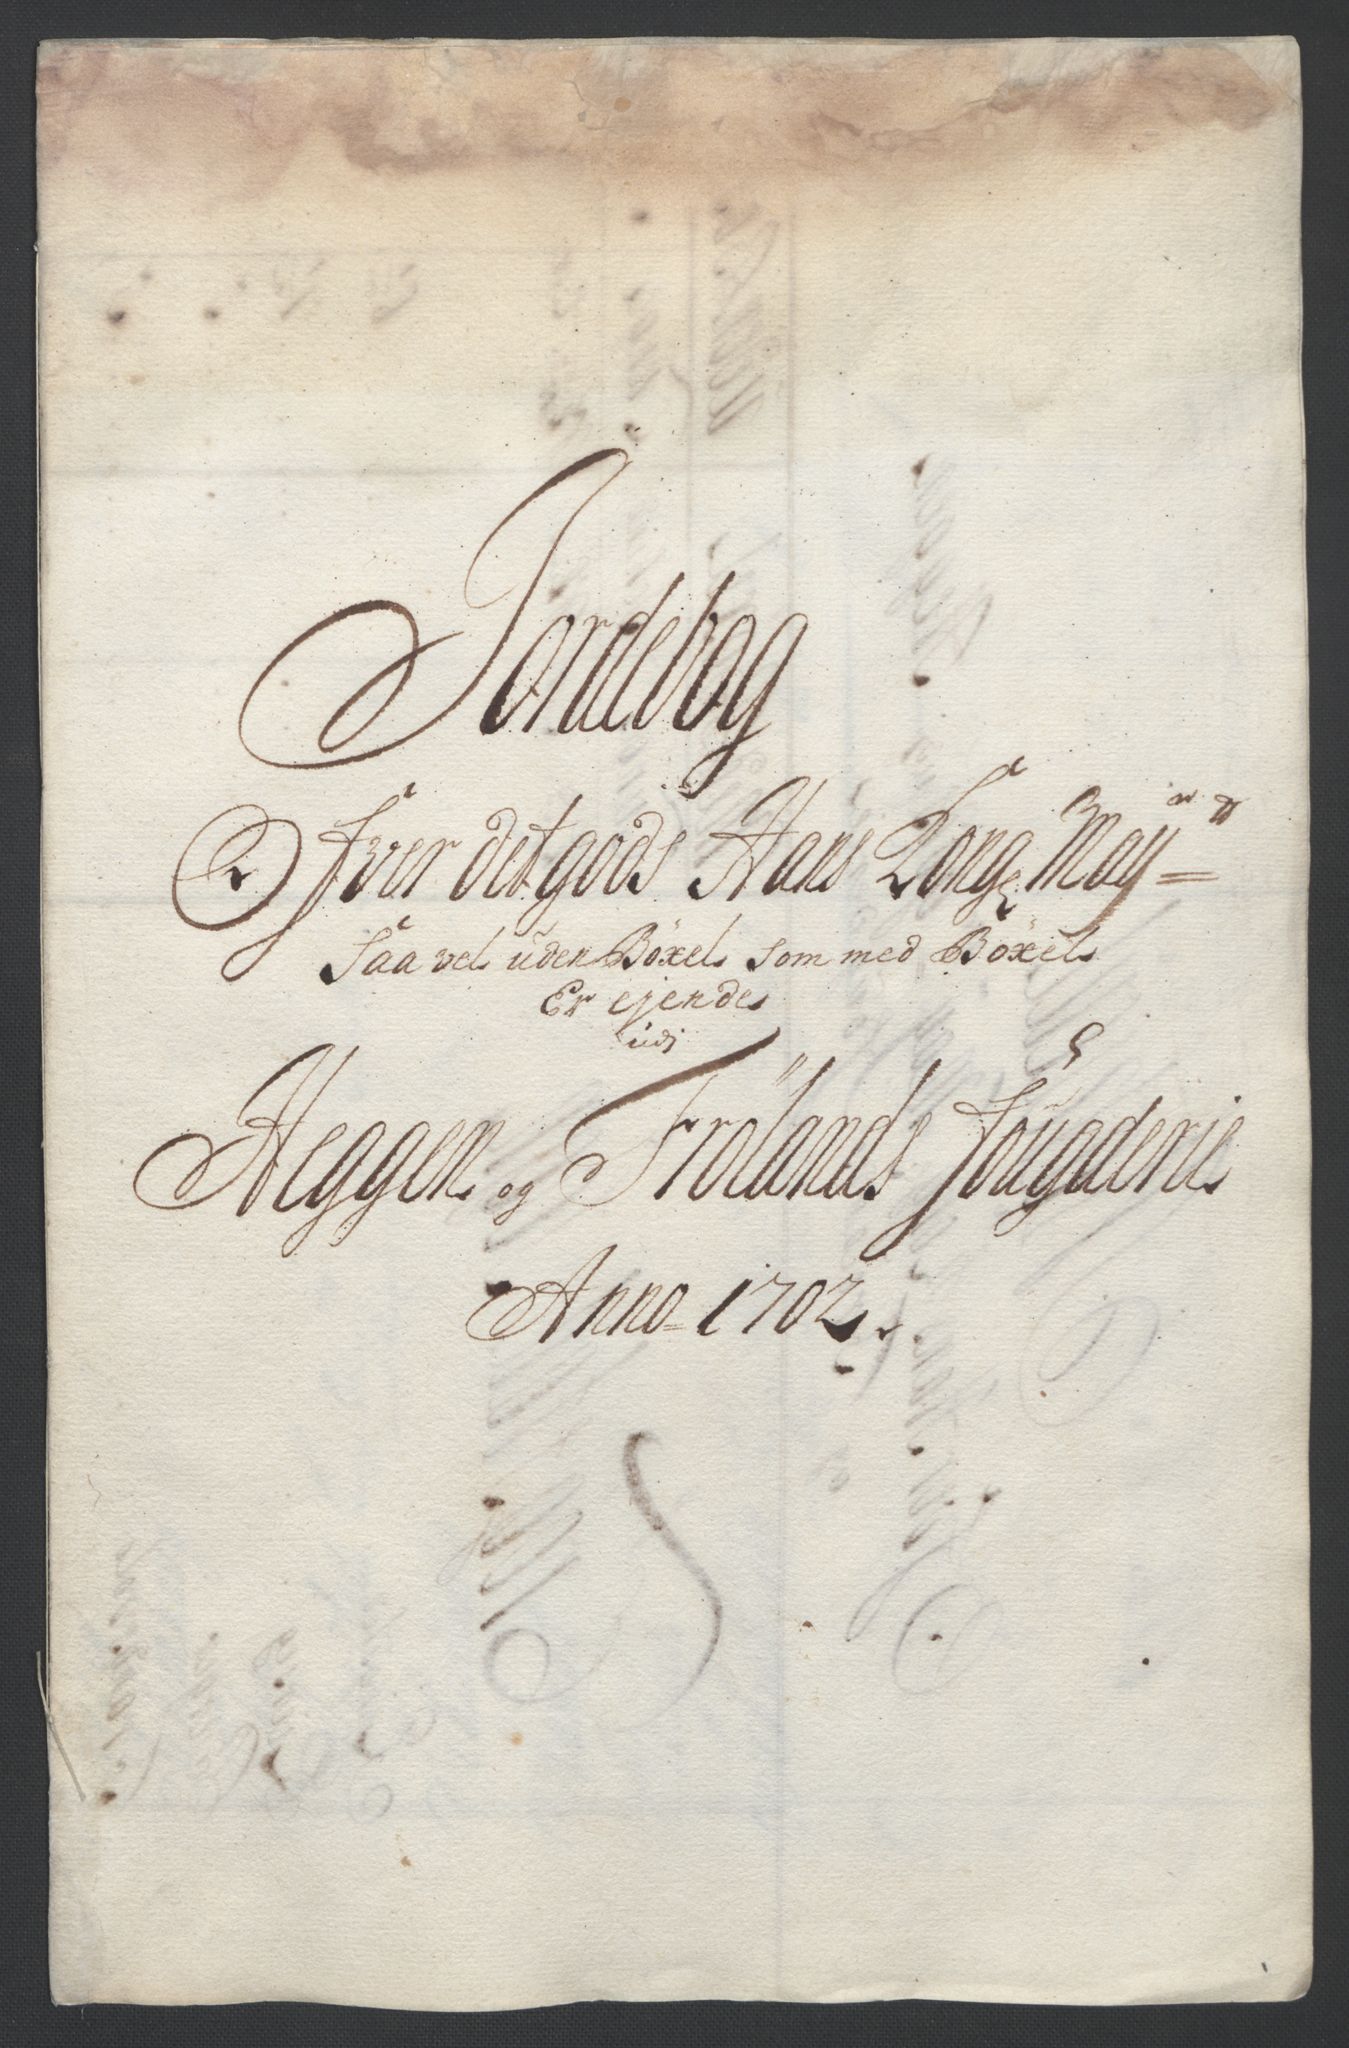 Jordebog
Ofver det gods Hans Kong: May:tt
Saa vel uden Böxel som med Böxel
Er ejende
udj
Heggen og Frölands fougderie
Anno 1702